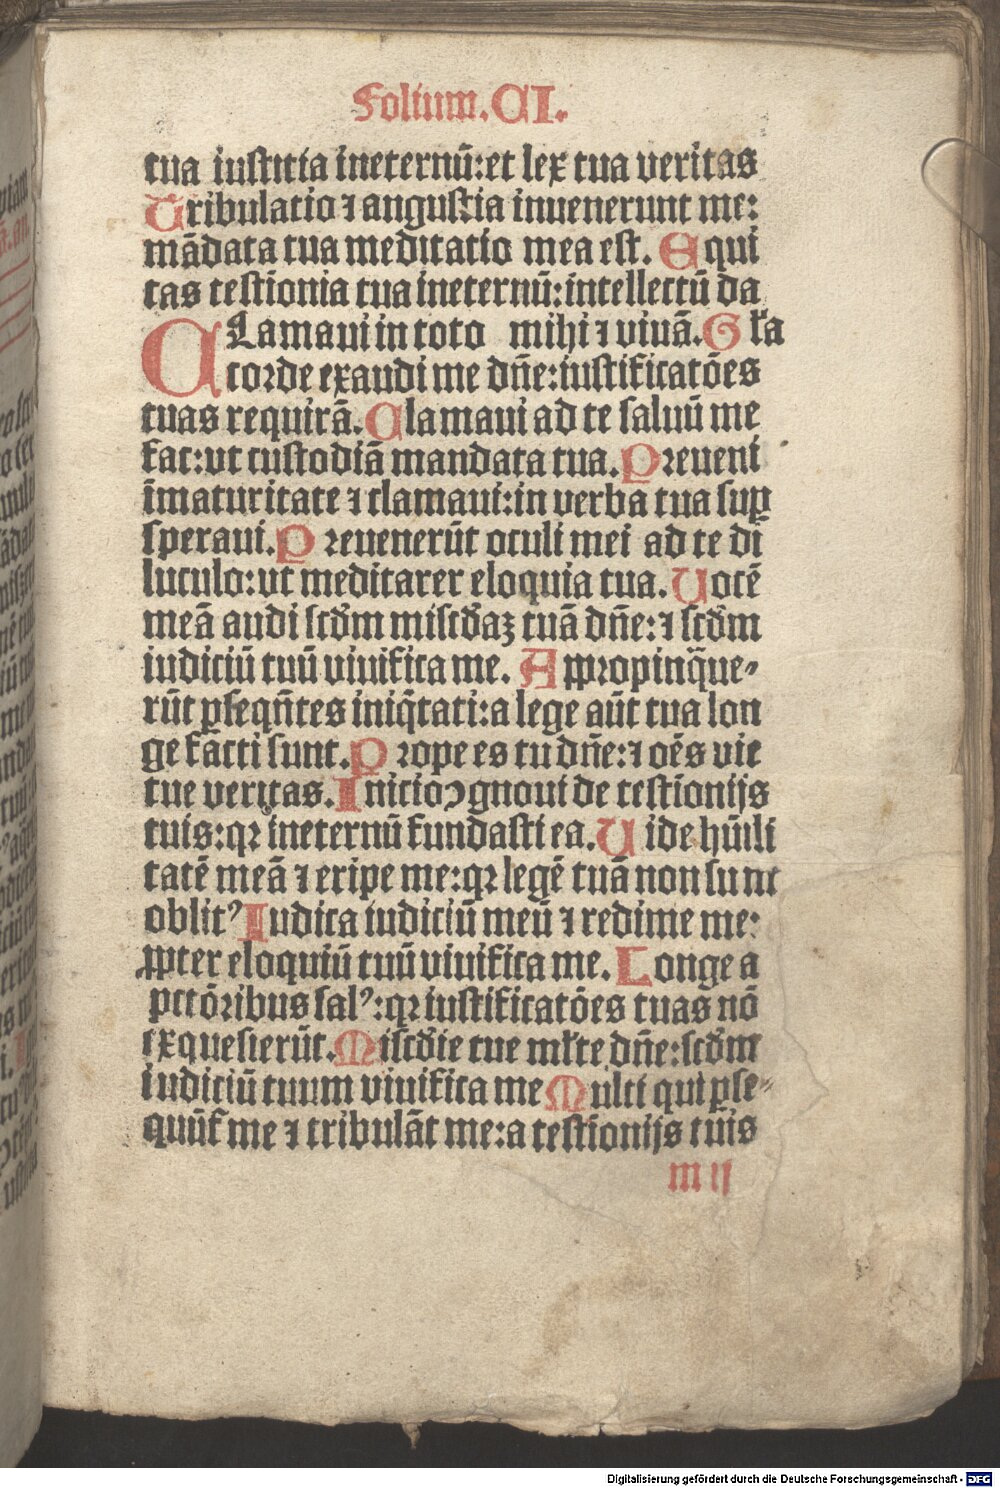 Folium.CI.
tua iustitia ineternū:et lex tua veritas
Tribulatio ⁊ angustia inuenerunt me:
mādata tua meditatio mea est. Equi
tas testiōnia tua ineternū:intellectū da
CLamaui in toto mihi ⁊ viuā. Gl'a
corde exaudi me dñe:iustificatōes
tuas requirā. Clamaui ad te saluū me
fac:vt custodiā mandata tua. Preueni
īmaturitate ⁊ clamaui:in verba tua suꝑ
speraui. Preuenerūt oculi mei ad te di
luculo:vt meditarer eloquia tua. Uocē
meā audi scd'm misc'd'aꝫ tuā dñe:⁊ scd'm
iudiciū tuū viuifica me. Appropinq̄ue⸗
rūt ꝑseqn̄tes iniq̄tati:a lege aūt tua lon
ge facti sunt. Prope es tu dñe:⁊ oēs vie
tue veritas. Inicio ꝯgnoui de testiōnijs
tuis:qꝛ ineternū fundasti ea. Uide hūili
tatē meā ⁊ eripe me:qꝛ legē tuā non sunt
oblit⁹ Iudica iudiciū meū ⁊ redime me:
ꝓpter eloquiū tuū viuifica me. Longe a
pctōribus sal⁹:qꝛ iustificatōes tuas nō
exquesierūt. Misc'd'ie tue ml'te dñe:scd'm
iudiciū tuum viuifica me Multi qui ꝑse⸗
quūt me ⁊ tribulāt me:a testiōnijs tuis
m ij
Digitalisierung gefördert durch die Deutsche Forschungsgemeinschaft - DFG